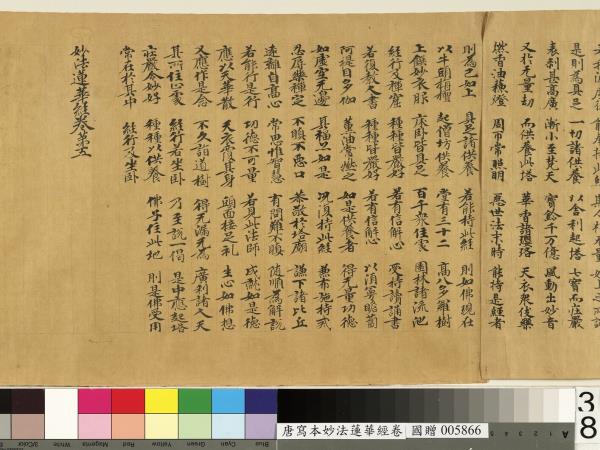 是則為具足 一切諸供養 以舍利起塔 七寶而莊嚴
表剎甚高廣 漸小至梵天 寶鈴千万億 風動出妙音
又於无量劫 而供養此塔 華香諸瓔珞 天衣眾伎樂
燃香油酥燈 周匝常照明 惡世法末時 能持是經者
則為已如上 具足諸供養 若能持此經 則如佛現在
以牛頭栴檀 起僧坊供養 堂有三十二 高八多羅樹
上饌妙衣服 床臥皆具足 百千眾住處 園林諸流池
經行及禪窟 種種皆嚴好 若有信解心 受持讀誦書
若復教人書 種種皆嚴好 若有信解心 以須曼瞻蔔
阿提目多伽 薰油常燃之 如是供養者 得无量功德
如虛空无邊 其福亦如是 況復持此經 兼布施持戒
忍辱樂禪定 不瞋不惡口 恭敬於塔廟 謙下諸比丘
遠離自高心 常思惟智慧 有問難不瞋 隨順為解說
若能行是行 功德不可量 若見此法師 成就如是德
應以天華散 天衣覆其身 頭面接足礼 生心如佛想
又應作是念 不久詣道樹 得无漏无為 廣利諸人天
其所住止處 經行若坐臥 乃至說一偈 是中應起塔
莊嚴令妙好 種種以供養 佛子住此地 則是佛受用
常在於其中 經行及坐臥
妙法蓮華經卷第五
3/Color
White
Magenta
Red
Yellow
Green
Cyan
Blue
唐寫本妙法蓮華經卷 國贈 005866
A
38